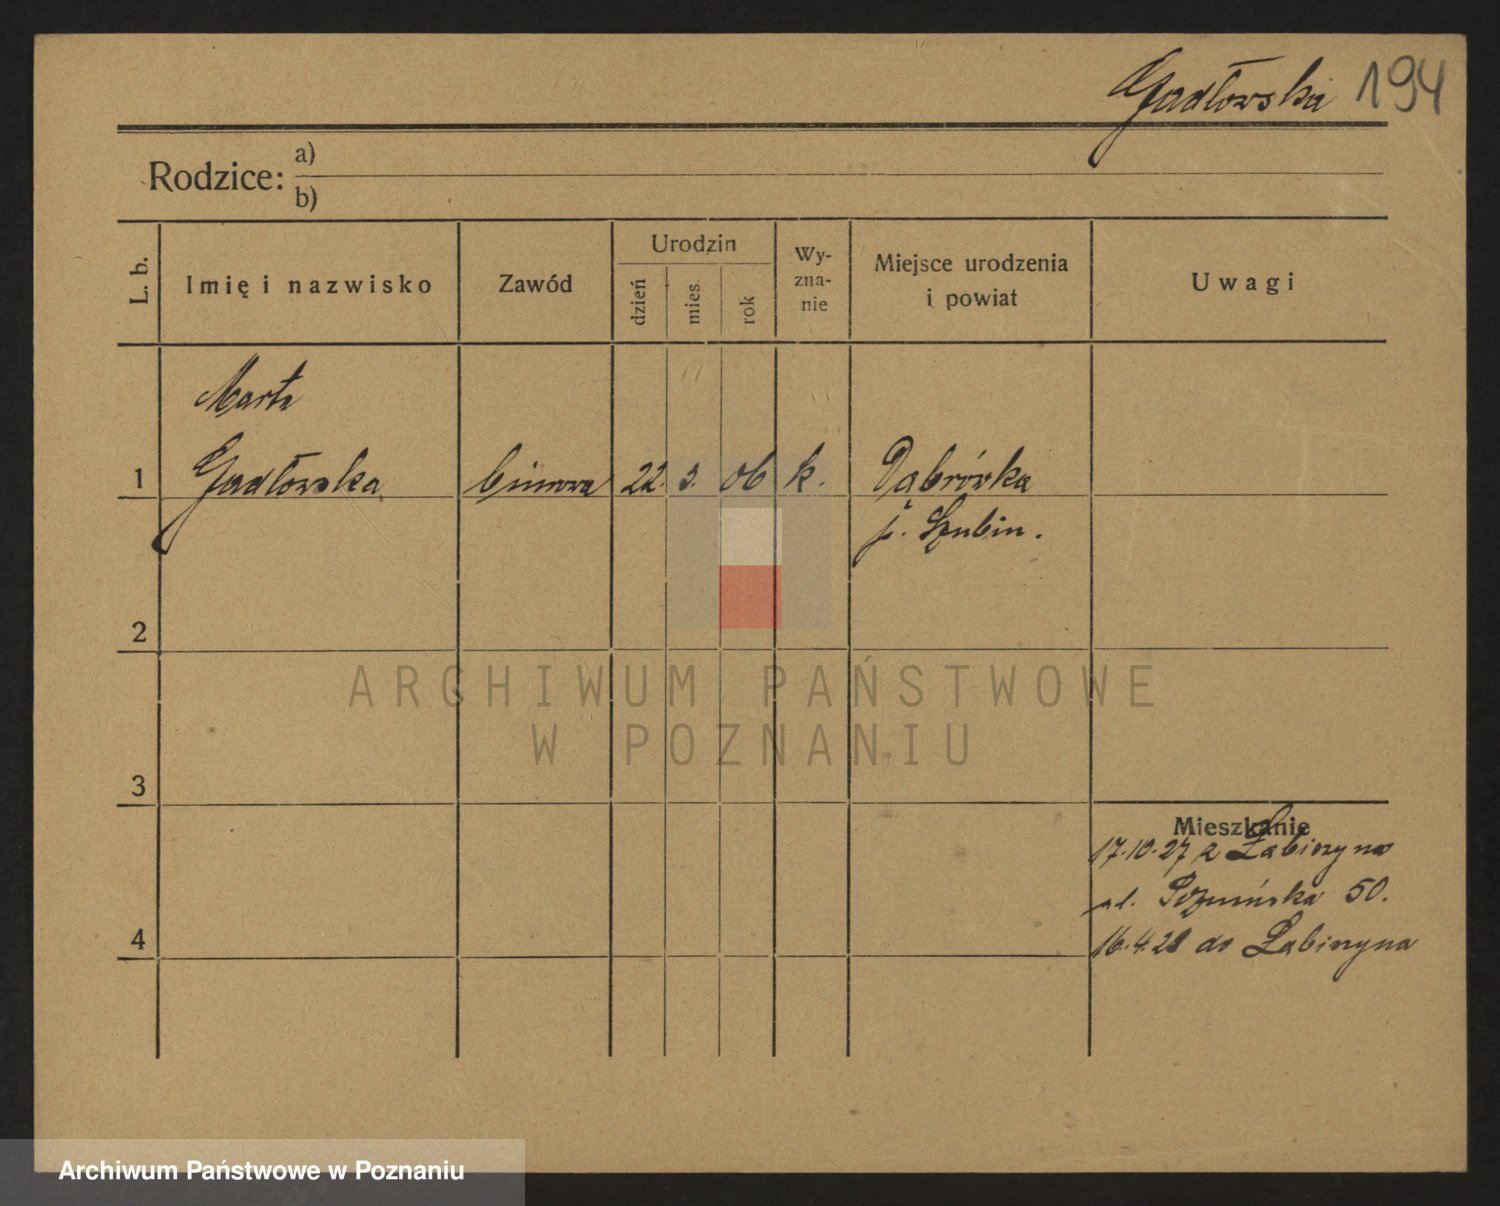 Gadłowska 194
Rodzice: a)
b)
L. b.
Imię i nazwisko
Zawód
Urodzin
dzień
mies.
rok
Wy-
zna-
nie
Miejsce urodzenia
i powiat
Uwagi
Marta
1 Gadłowska biurowa 22. 3. 06 k. Dąbrówka
p. Szubin.
2
ARCHIWUM PAŃSTWOWE
W POZNANIU
3
Mieszkanie
17.10.27 z Łabiszyna
ul. Poznańska 50.
4
16.4.28 do Łabiszyna
Archiwum Państwowe w Poznaniu